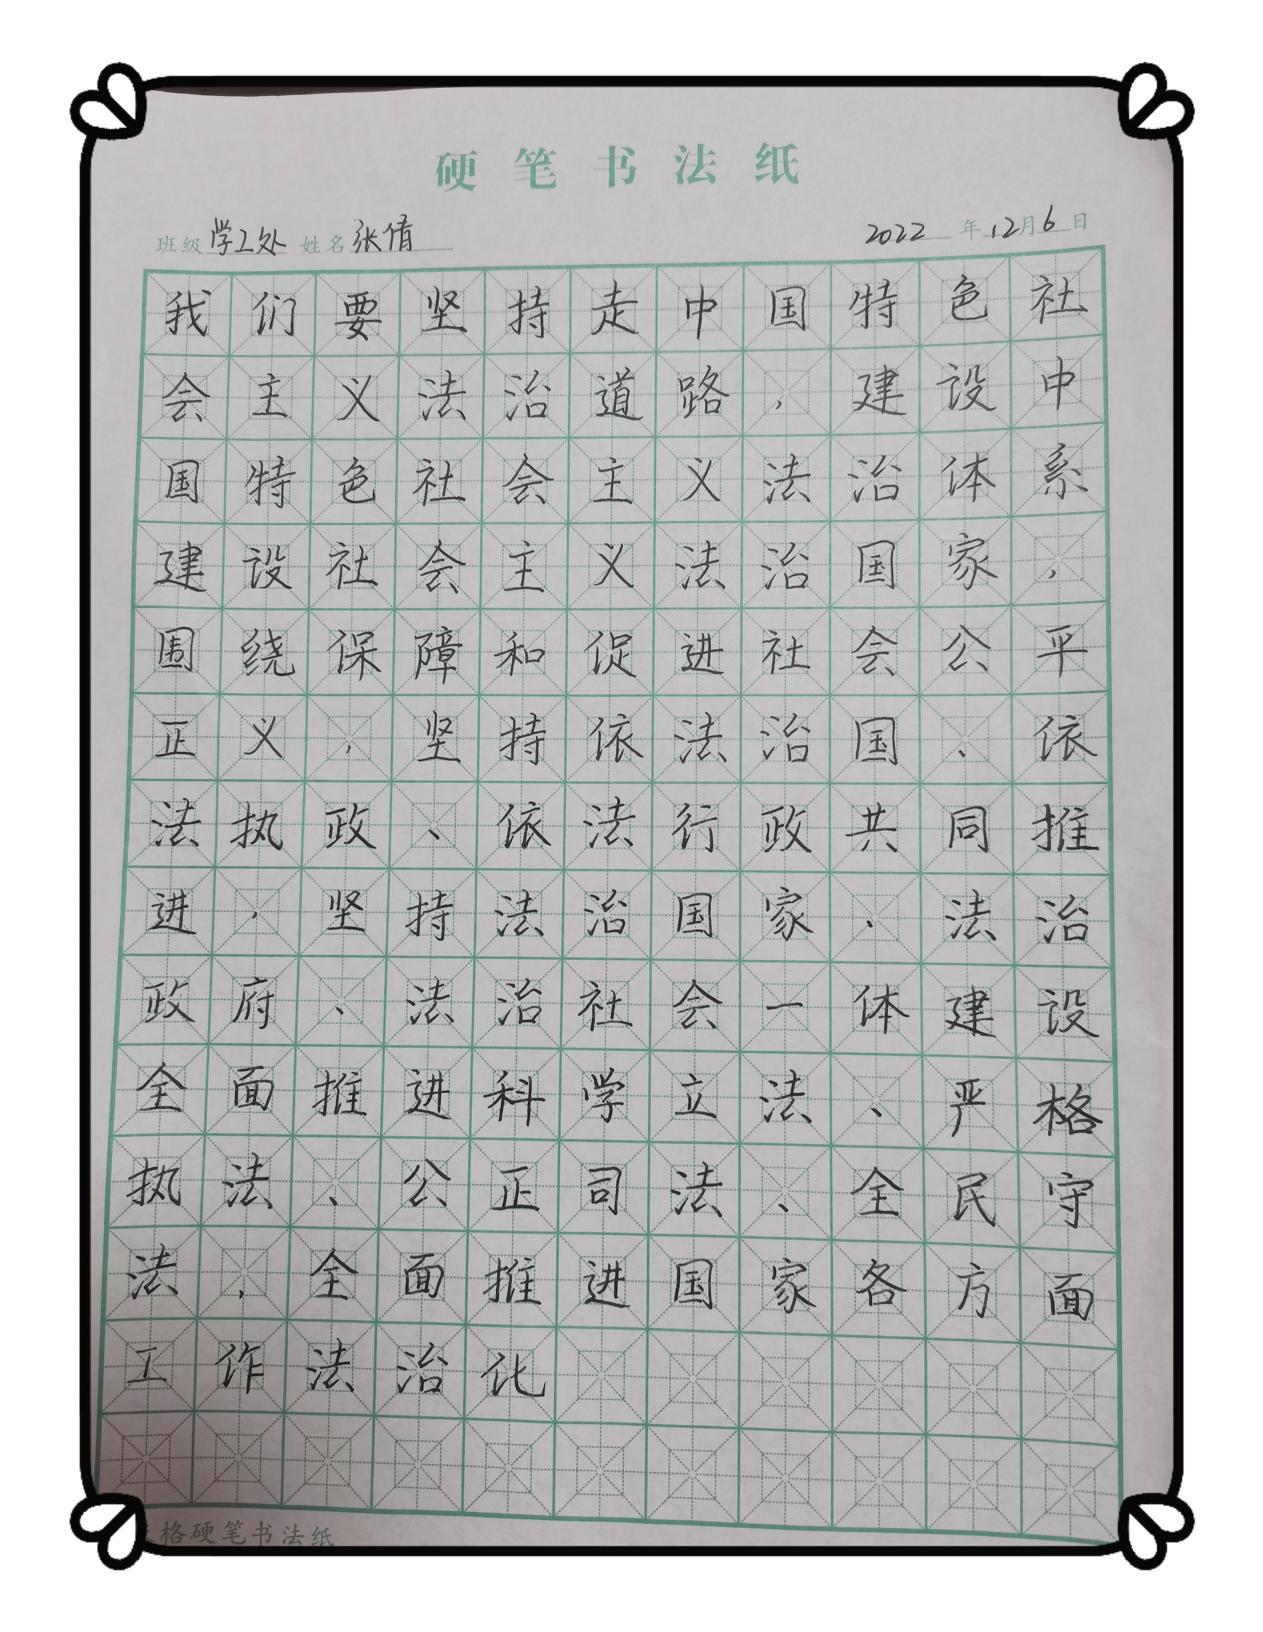 硬笔书法纸
班级 学工处 姓名 张倩 2022 年 12月 6 日
我们要坚持走中国特色社
会主义法治道路，建设中
国特色社会主义法治体系
建设社会主义法治国家，
围绕保障和促进社会公平
正义，坚持依法治国、依
法执政、依法行政共同推
进，坚持法治国家、法治
政府、法治社会一体建设
全面推进科学立法、严格
执法、公正司法、全民守
法，全面推进国家各方面
工作法治化
格硬笔书法纸